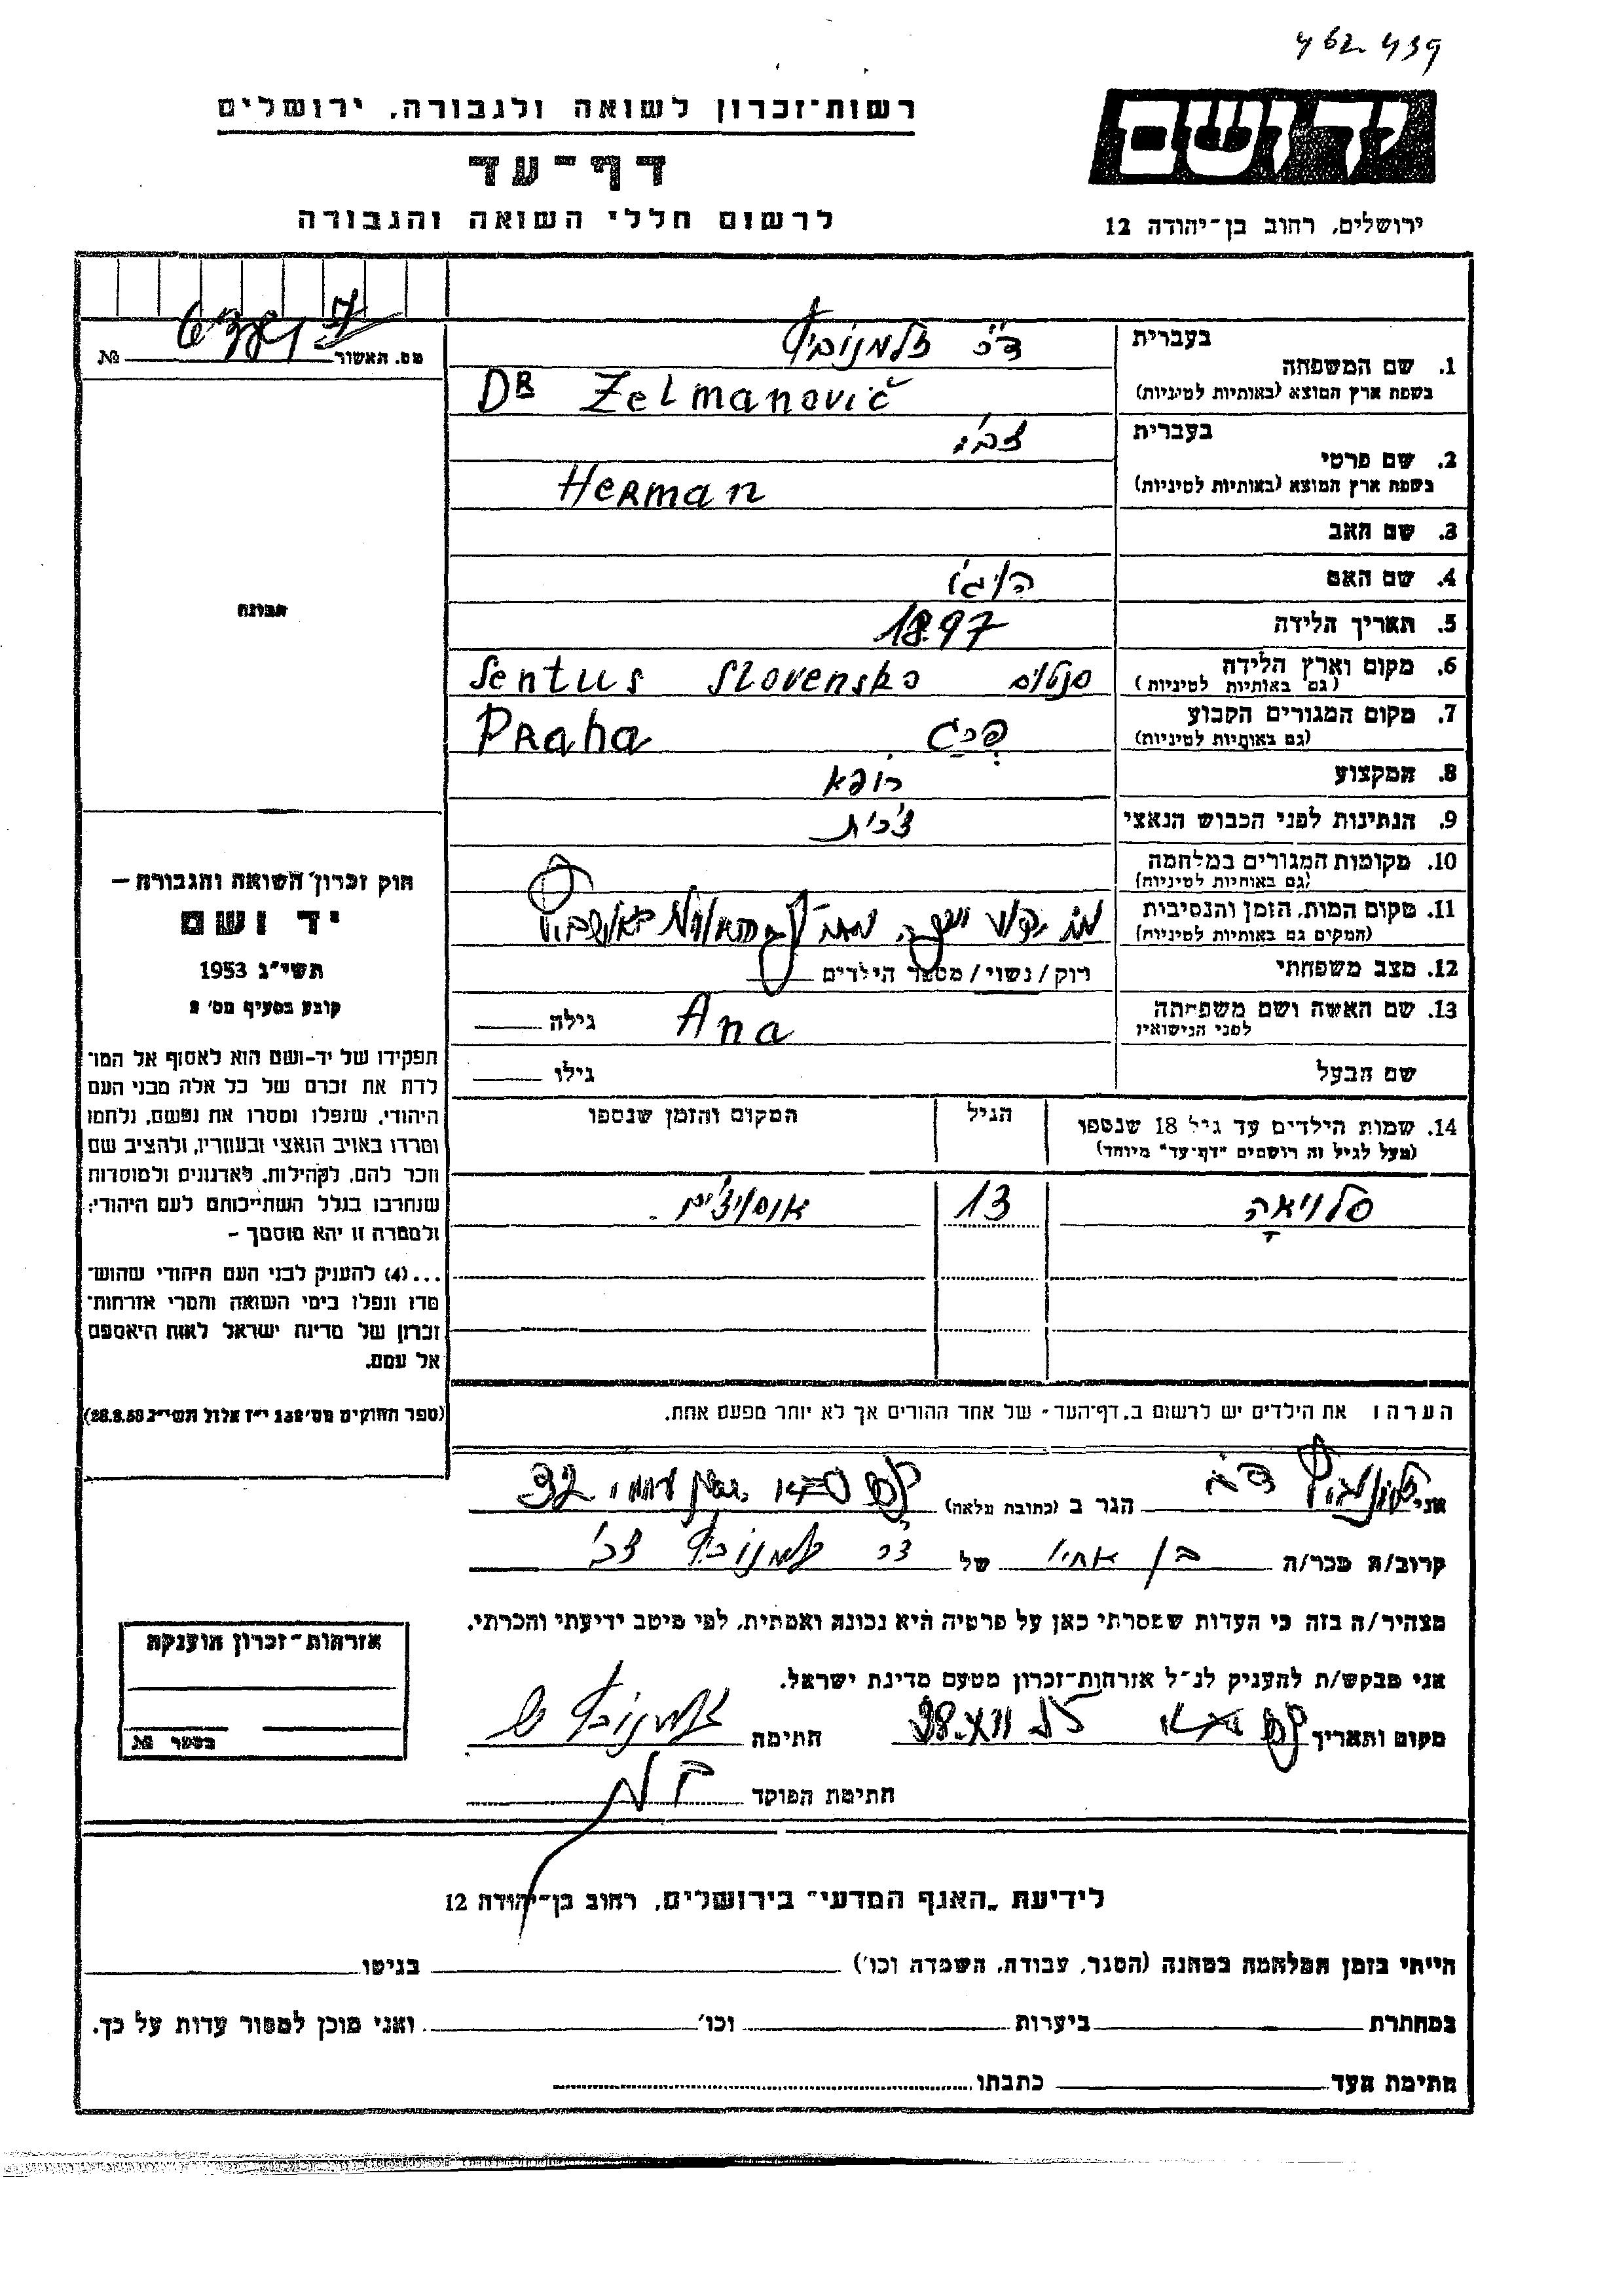 462 439
רשות־זכרון לשואה ולגבורה, ירושלים
יד ושם
דף־עד
לרשום חללי השואה והגבורה
ירושלים, רחוב בן־יהודה 12
מס. האשור №
בעברית ד״ר זלמנוביץ
1. שם המשפחה
בשפת ארץ המוצא (באותיות לטיניות) DR Zelmanovič
בעברית צבי
2. שם פרטי
בשפת ארץ המוצא (באותיות לטיניות) Herman
3. שם האב
4. שם האם
5. תאריך הלידה 1897
6. מקום וארץ הלידה
(גם באותיות לטיניות) Sentus Slovensko
7. מקום המגורים הקבוע
(גם באותיות לטיניות) פרג Praha
8. המקצוע רופא
9. הנתינות לפני הכבוש הנאצי צ'כית
10. מקומות המגורים במלחמה
(גם באותיות לטיניות)
11. מקום המות, הזמן והנסיבות
(המקום גם באותיות לטיניות)
12. מצב משפחתי רוק/נשוי/מספר הילדים
13. שם האשה ושם משפחתה
לפני הנישואין Ana גילה
שם הבעל גילו
14. שמות הילדים עד גיל 18 שנספו הגיל המקום והזמן שנספו
(מעל לגיל זה רושמים "דף־עד" מיוחד)
סלויאה 13
הערה: את הילדים יש לרשום ב„דף־העד" של אחד ההורים אך לא יותר מפעם אחת.
תמונה
חוק זכרון השואה והגבורה —
יד ושם
תשי״ג 1953
קובע בסעיף מס' 2
תפקידו של יד־ושם הוא לאסוף אל המו־
לדת את זכרם של כל אלה מבני העם
היהודי, שנפלו ומסרו את נפשם, נלחמו
ומרדו באויב הנאצי ובעוזריו, ולהציב שם
וזכר להם, לקהילות, לארגונים ולמוסדות
שנחרבו בגלל השתייכותם לעם היהודי;
ולמטרה זו יהא מוסמך —
...(4) להעניק לבני העם היהודי שהוש־
מדו ונפלו בימי השואה והמרי אזרחות־
זכרון של מדינת ישראל לאות היאספם
אל עמם.
(ספר החוקים מס' 132 י״ז אלול תשי״ג 28.8.53)
אני הגר ב (כתובת מלאה)
קרוב/ה מכר/ה בן אחיו של ד״ר זלמנוביץ צבי
מצהיר/ה בזה כי העדות שמסרתי כאן על פרטיה היא נכונה ואמתית, לפי מיטב ידיעתי והכרתי.
אני מבקש/ת להעניק לנ״ל אזרחות־זכרון מטעם מדינת ישראל.
מקום ותאריך חתימה
חתימת הפוקד
אזרחות־זכרון הוענקה
בספר №
לידיעת „האגף המדעי" בירושלים, רחוב בן־יהודה 12
הייתי בזמן המלחמה במחנה (הסגר, עבודה, השמדה וכו') בגיטו
במחתרת ביערות וכו' ואני מוכן למסור עדות על כך.
חתימת העד כתבתו